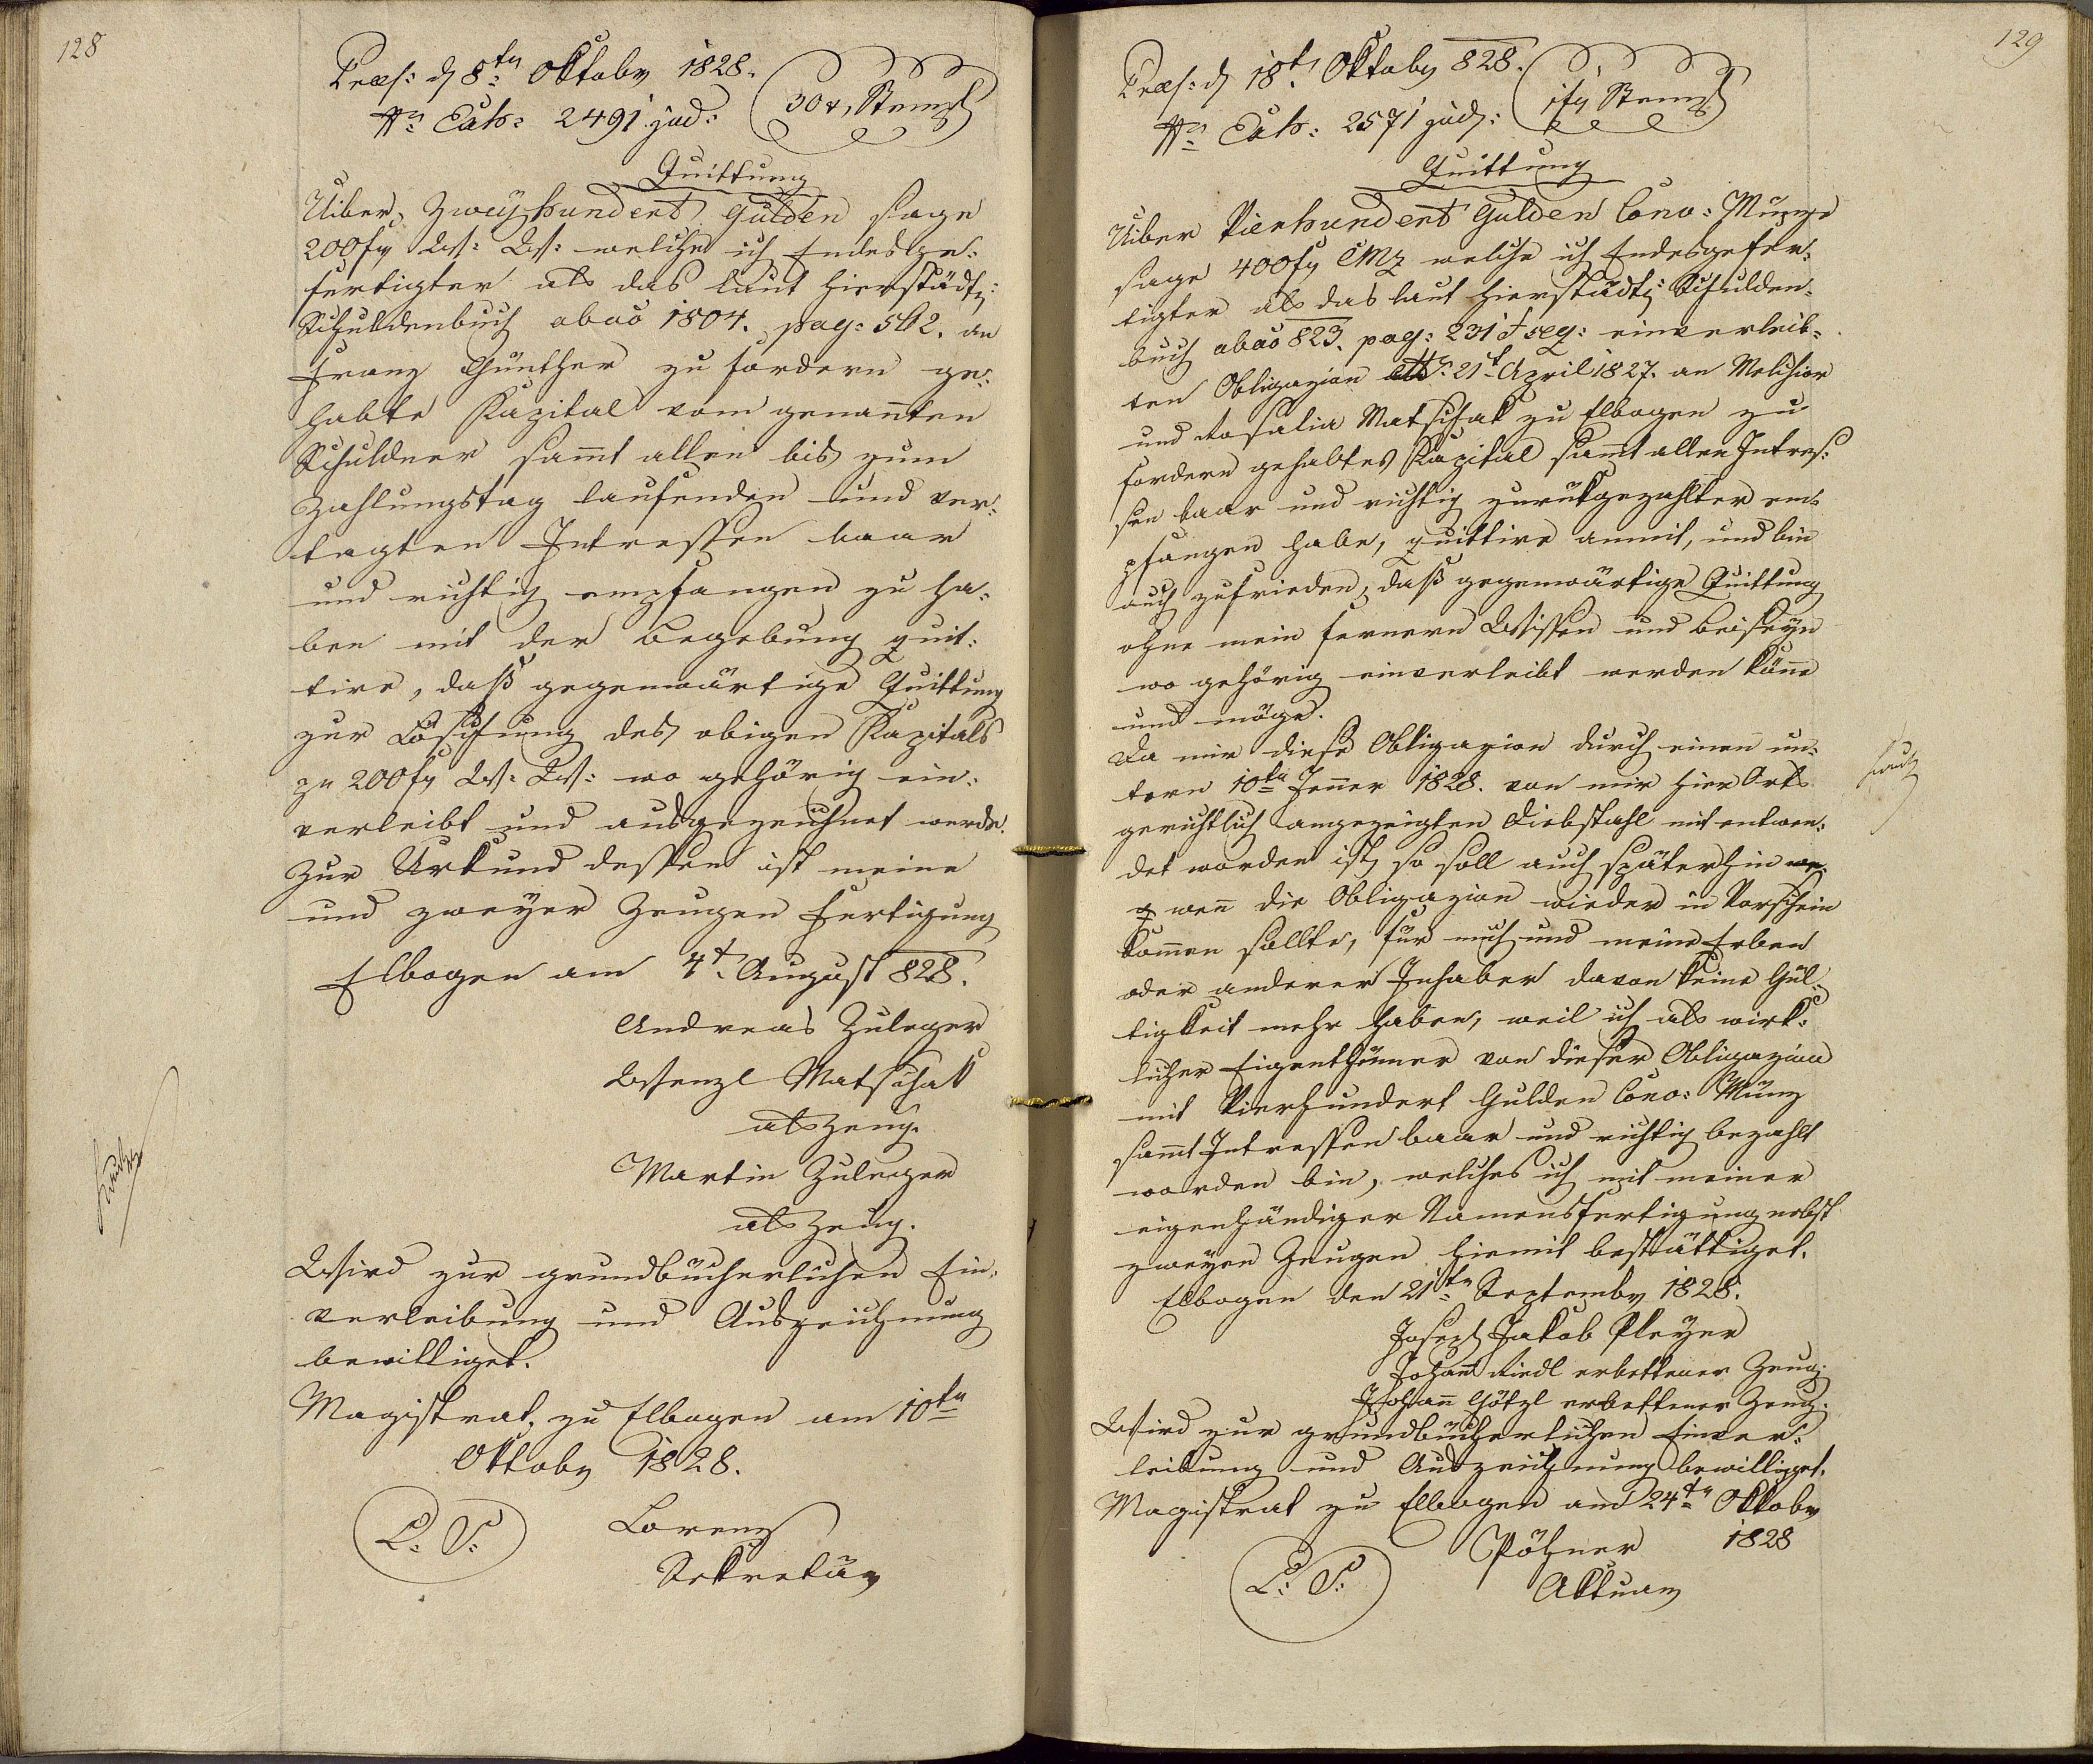 128
Præs: d 8ten Oktober 1828.
Nro Exh: 2491 jud:
30 x, Stempl
Quittung
Uiber, Zweyhundert Gulden sage
200 fl W: W: welche ich Endesge:
fertigter als das laut hierstädt:
Schuldenbuch abao 1804. pag: 562. an
Franz Günther zu fordern ge:
habte Kapital vom genañten
Schuldner sam̃t allen bis zum
Zahlungstag laufenden und ver:
tagten Intressen baar
und richtig empfangen zu ha:
ben mit der Begebung quit:
tire, daß gegenwärtige Quittung
zur Löschung des obigen Kapitals
zu 200 fl W: W: wo gehörig ein:
verleibt und ausgezeichnet werde.
Zur Urkund dessen ist meine
und zweyer Zeugen Fertigung
Elbogen am 4t August 828.
Andreas Zuleger
Wenzl Matschak
als Zeug.
Martin Zuleger
als Zeug.
Wird zur grundbücherlichen Ein:
verleibung und Auszeichnung
bewilliget.
Magistrat, zu Elbogen am 10ten
Oktober 1828.
L: S:
Lorenz
Sekretär
129
Præs: d 18t Oktober 828.
Nro Exh: 2571 jud:
1 fl Stempl
Quittung
Uiber Vierhundert Gulden Conv: Münze
sage 400 fl CMz welche ich Endesgefer:
tigter als das laut hierstädt: Schulden:
buch abao 823. pag: 231 & seq: einverleib:
ten Obligazion 21t April 1827. an Melchior
und Rosalia Matschak zu Elbogen zu
fordern gehabtes Kapital sam̃t allen Intres:
sen baar und richtig zurückgezahlter em:
pfangen habe, quittire anmit, und bin
auch zufrieden, daß gegenwärtige Quittung
ohne mein fernern Wissen und Beiseyn
wo gehörig einverleibt werden könne
und möge.
Da mir diese Obligazion durch einen un:
term 10ten Jenner 1828. von mir hier Orts
gerichtlich angezeigten Diebstahl mit entwen:
det worden ist, so soll auch späterhin
wen̄ die Obligazion wieder in Vorschein
kom̃en sollte, für mich und meine Erben
oder anderer Inhaber davon keine Gül:
tigkeit mehr haben, weil ich als wirk:
licher Eigenthümer von dieser Obligazion
mit Vierhundert Gulden Conv: Münz
sam̃t Intressen baar und richtig bezahlt
worden bin, welches ich mit meiner
eigenhändiger Namensfertigung nebst
zweyen Zeugen hiemit bestättiget.
Elbogen den 21ten September 1828.
Joseph Jakob Pleyer
Johan̄ Riedl erbettener Zeug.
Johan̄ Götzl erbettener Zeug.
Wird zur grundbücherlichen Einver:
leibung und Auszeichnung bewilliget.
Magistrat zu Elbogen am 24ten Oktober
1828
L: S:
Pöhner
Aktuar